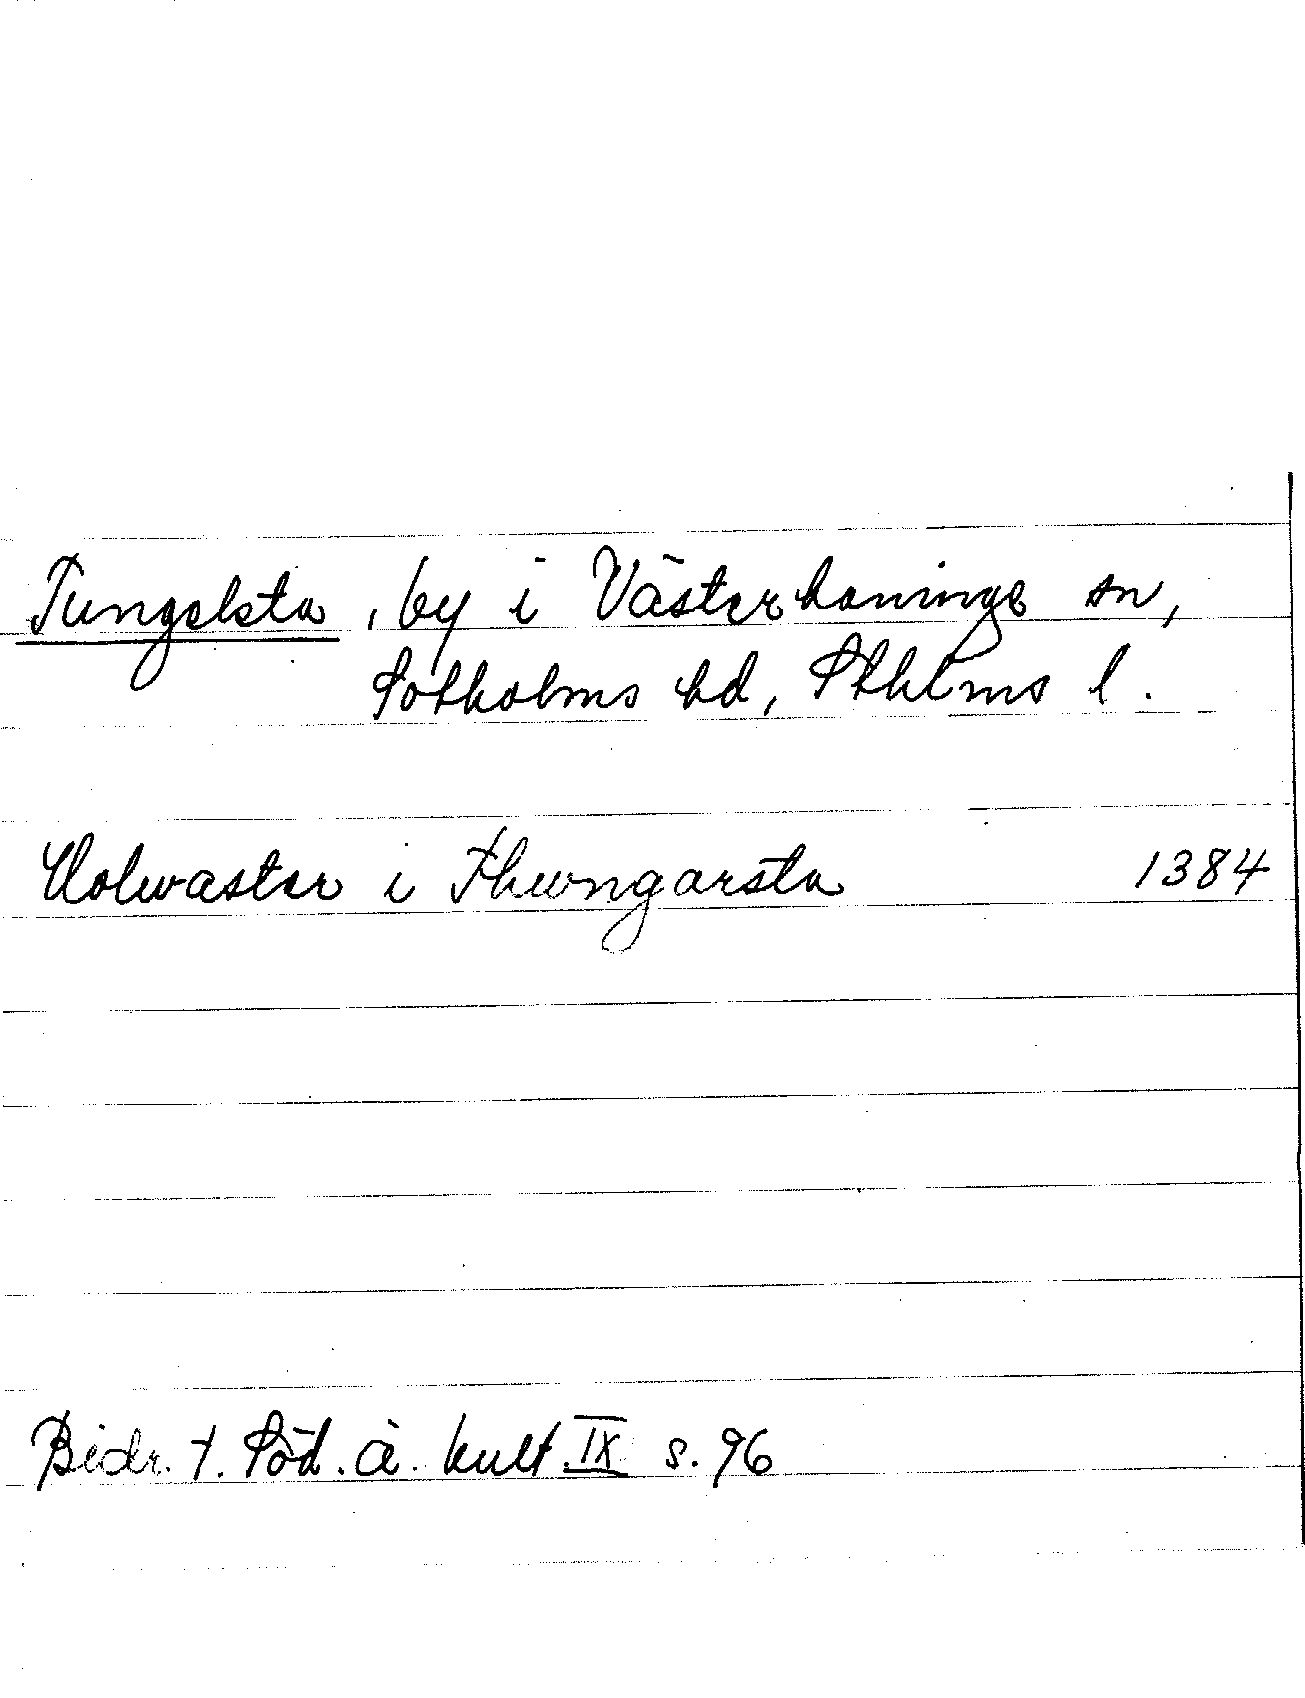 Tungelsta, by i Västerhaninge sn,
Sotholms hd, Sthlms l.
Holwaster i Thwngarsta 1384
Bidr. t. Söd. ä. kult. IX s. 96